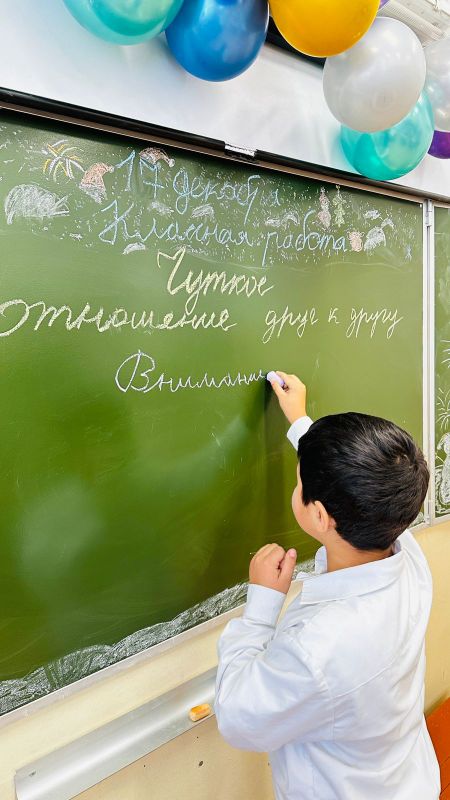 17 декабря
Классная работа
Чуткое
отношение друг к другу
Внимани